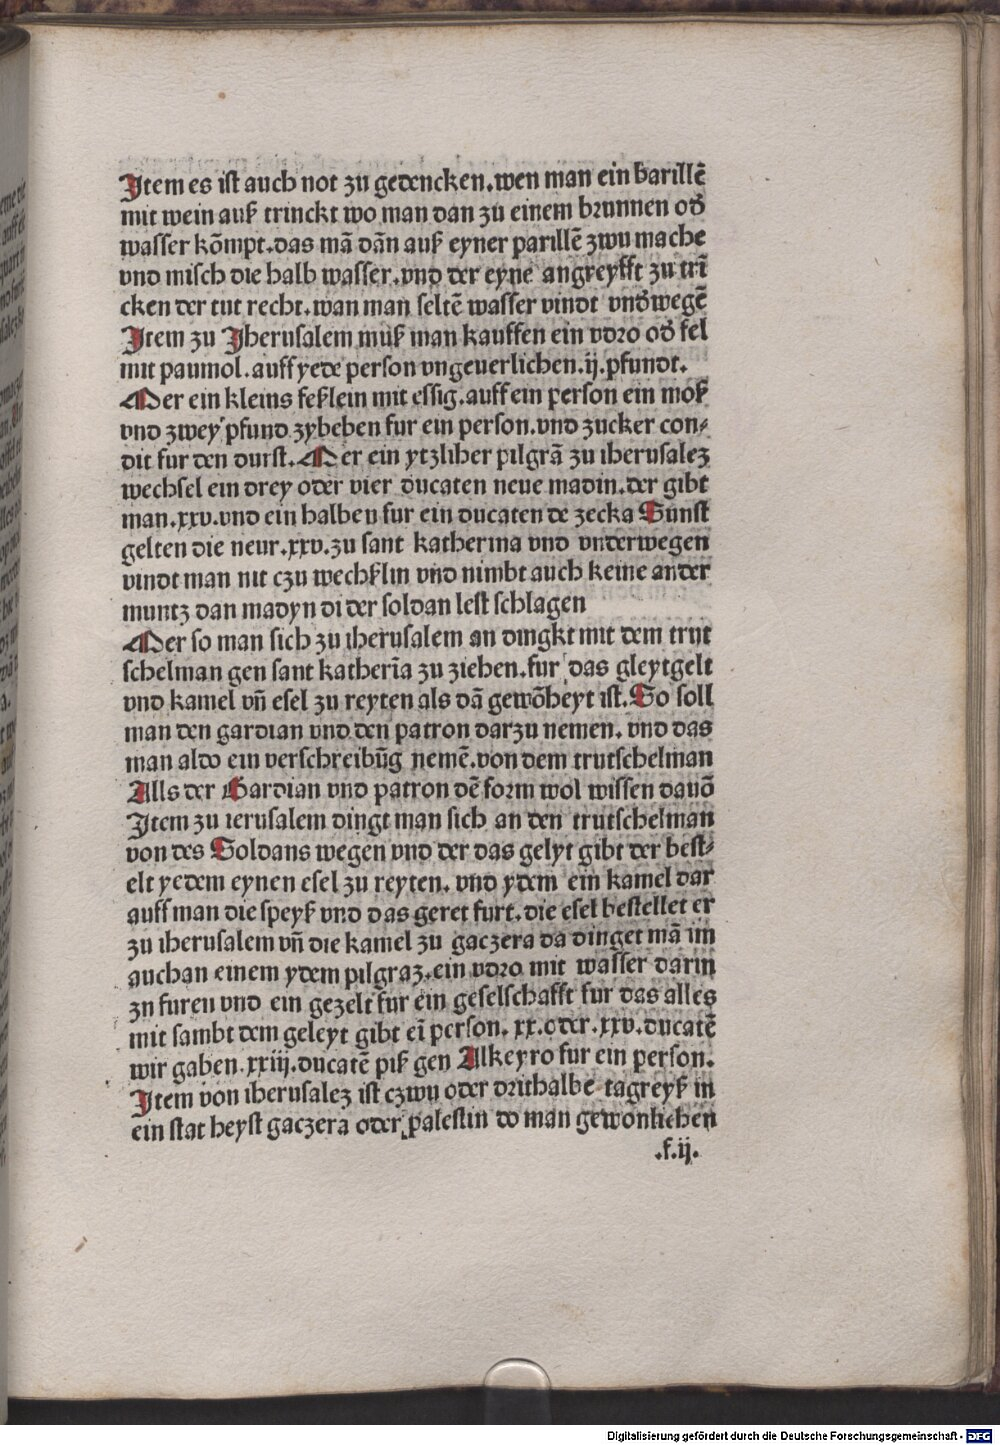 Item es ist auch not zu gedencken.wen man ein barillē
mit wein auß trinckt wo man dan zu einem brunnen od̄
wasser kōmpt.das mā dān auß eyner parillē zwu mache
vnd misch die halb wasser.vnd der eyne angreyfft zu trī
cken der tut recht.wan man seltē wasser vindt vnd̄wegē
Item zu Jherusalem muß man kauffen ein vdro od̄ fel
mit paumol.auff yede person vngeuerlichen.ij.pfundt.
Mer ein kleins feßlein mit essig.auff ein person ein moß
vnd zwey pfund zybeben fur ein person.vnd zucker con⸗
dit fur den durst.Mer ein ytzliher pilgrā zu iherusalez
wechsel ein drey oder vier ducaten neue madin.der gibt
man.xxv.vnd ein halben fur ein ducaten de zecka Sunst
gelten die neur.xxv.zu sant katherina vnd vnderwegen
vindt man nit czu wechßlin vnd nimbt auch keine ander
muntz dan madyn di der soldan lest schlagen
Mer so man sich zu iherusalem an dingkt mit dem trut
schelman gen sant katherīa zu ziehen.fur das gleytgelt
vnd kamel vn̄ esel zu reyten als dā gewōheyt ist.So soll
man den gardian vnd den patron darzu nemen. vnd das
man aldo ein verschreibūg nemē.von dem trutschelman
Alls der Gardian vnd patron dē form wol wissen dauō
Item zu ierusalem dingt man sich an den trutschelman
von des Soldans wegen vnd der das gelyt gibt der best⸗
elt yedem eynen esel zu reyten. vnd ydem ein kamel dar
auff man die speyß vnd das geret furt.die esel bestellet er
zu iherusalem vn̄ die kamel zu gaczera da dinget mā im
auchan einem ydem pilgraz.ein vdro mit wasser darin
zn furen vnd ein gezelt fur ein geselschafft fur das alles
mit sambt dem geleyt gibt eī person. xx.oder.xxv.ducatē
wir gaben.xxiij.ducatē piß gen Alkeyro fur ein person.
Item von iherusalez ist czwu oder drithalbe tagreyß in
ein stat heyst gaczera oder palestin do man gewonlichen
.f.ij.
Digitalisierung gefördert durch die Deutsche Forschungsgemeinschaft - DFG